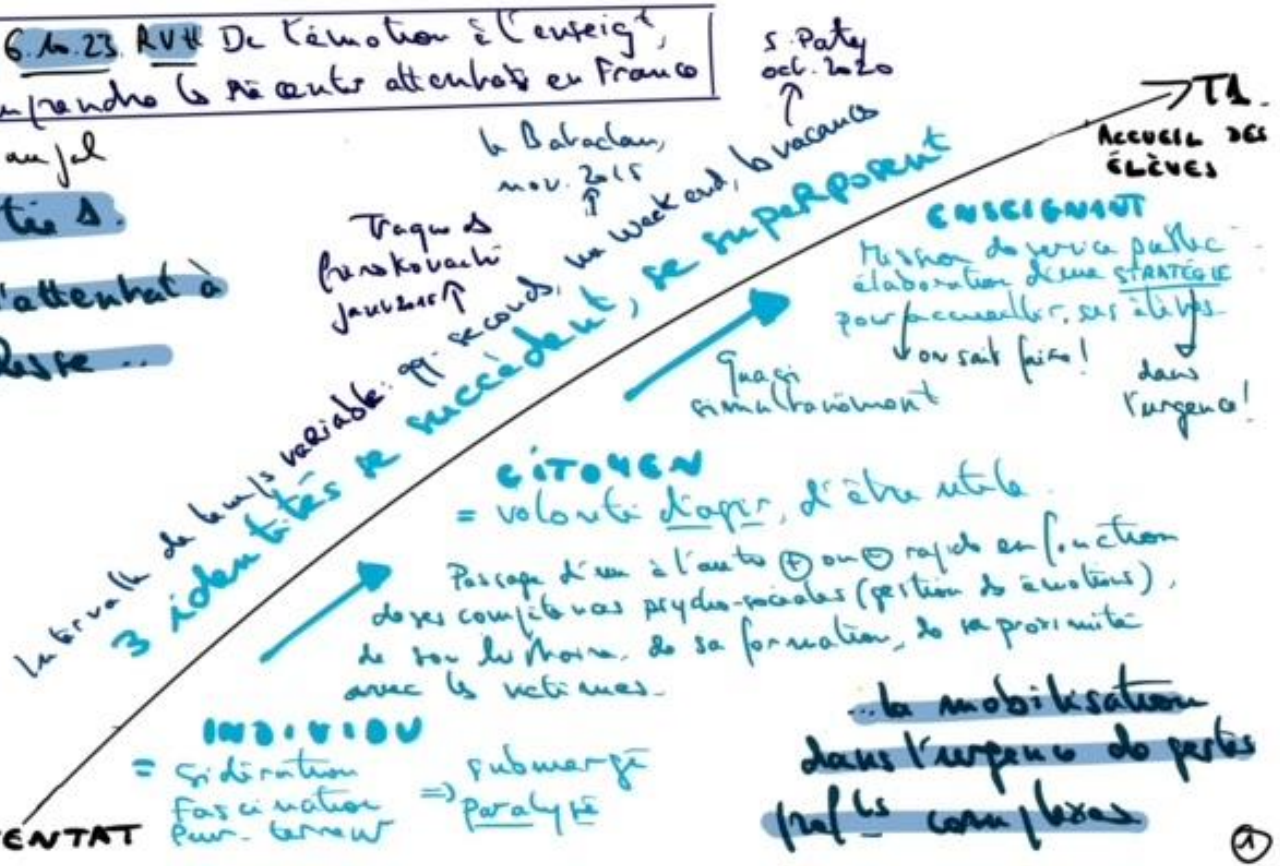 6.10.23. RVH De l'émotion à l'enseigt,
les récents attentats en France
S. Paty
oct. 2020
T1.
ACCUEIL DES
ÉLÈVES
le Bataclan,
nov. 2015
Traque des
frères Kovachi
janv 2015
l'attentat à
Intervalle de temps variable: qq. seconds, un week end, les vacances
3 identités se succèdent, se superposent
ENSEIGNANT
Mission de service public
élaboration d'une STRATÉGIE
pour accueillir ses élèves
on sait faire!
dans
l'urgence!
Quasi
simultanément
CITOYEN
= volonté d'agir, d'être utile.
Passage d'un à l'autre + ou - rapide en fonction
de ses compétences psycho-sociales (gestion des émotions),
de son histoire, de sa formation, de sa proximité
avec les victimes.
INDIVIDU
= sidération
Fascination
Peur - terreur
=> submergé
Paralysé
...la mobilisation
dans l'urgence de gestes
profls complexes
ENTAT
1